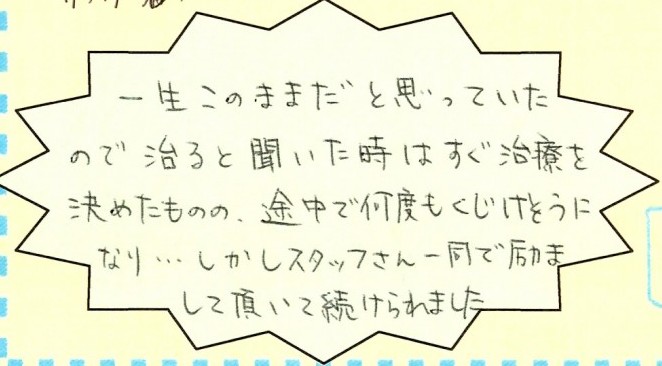 一生このままだと思っていた
ので治ると聞いた時はすぐ治療を
決めたものの、途中で何度もくじけそうに
なり…しかしスタッフさん一同で励ま
して頂いて続けられました